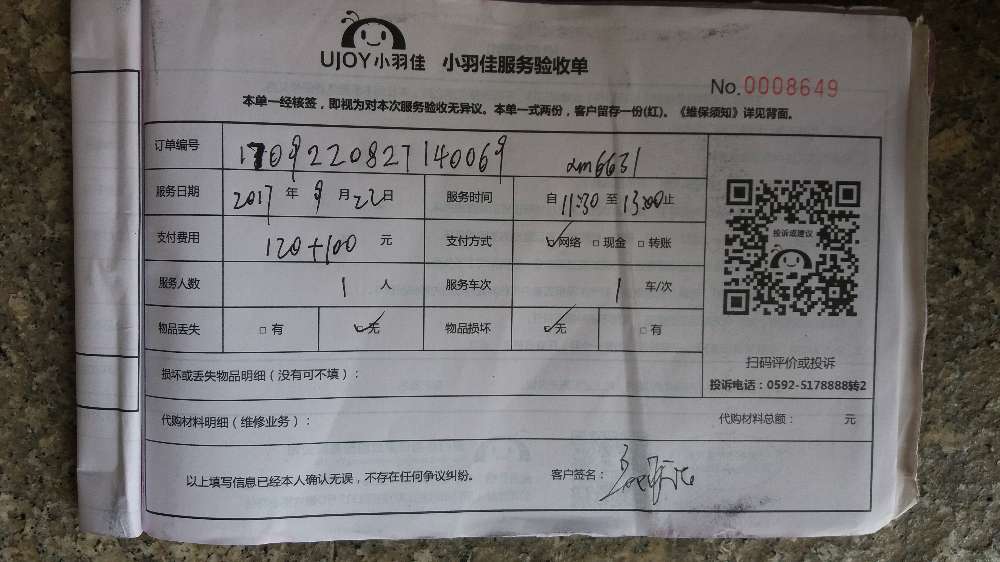 UJOY小羽佳 小羽佳服务验收单
No.0008649
本单一经核签，即视为对本次服务验收无异议。本单一式两份，客户留存一份(红)。《维保须知》详见背面。
订单编号 1709220827140069 dm6631
服务日期 2017年9月22日 服务时间 自11:30至13:00止
支付费用 120+100 元 支付方式 网络 现金 转账
服务人数 1 人 服务车次 1 车/次
物品丢失 有 无 物品损坏 无 有
投诉或建议
扫码评价或投诉
投诉电话：0592-5178888转2
损坏或丢失物品明细（没有可不填）：
代购材料明细（维修业务）： 代购材料总额： 元
以上填写信息已经本人确认无误，不存在任何争议纠纷。 客户签名：